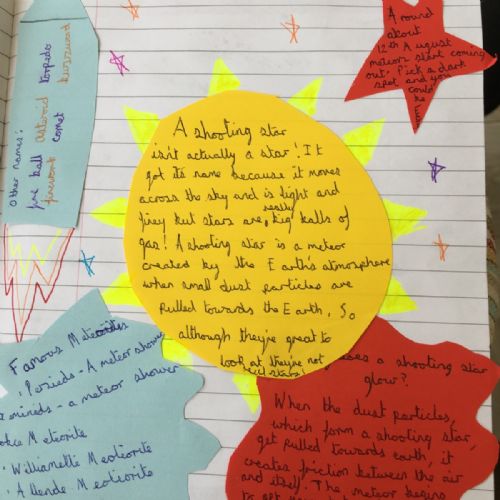 Other names:
fire ball asteroid torpedo
firework comet buzzword
Around
about
12th August
meteors start coming
out. Pick a dark
spot and you
could be
A shooting star
isn't actually a star! It
got its name because it moves
across the sky and is light and
firey but stars are really big balls of
gas! A shooting star is a meteor
created by the Earth's atmosphere
when small dust particles are
pulled towards the Earth. So
although they're great to
look at they're not
real stars!
Famous Meteorites
Perseids - A meteor shower
- a meteor shower
Meteorite
Willamette Meteorite
Allende Meteorite
does a shooting star
glow?
When the dust particles,
which form a shooting star,
get pulled towards earth, it
creates friction between the air
and itself. The meteor begins
to get